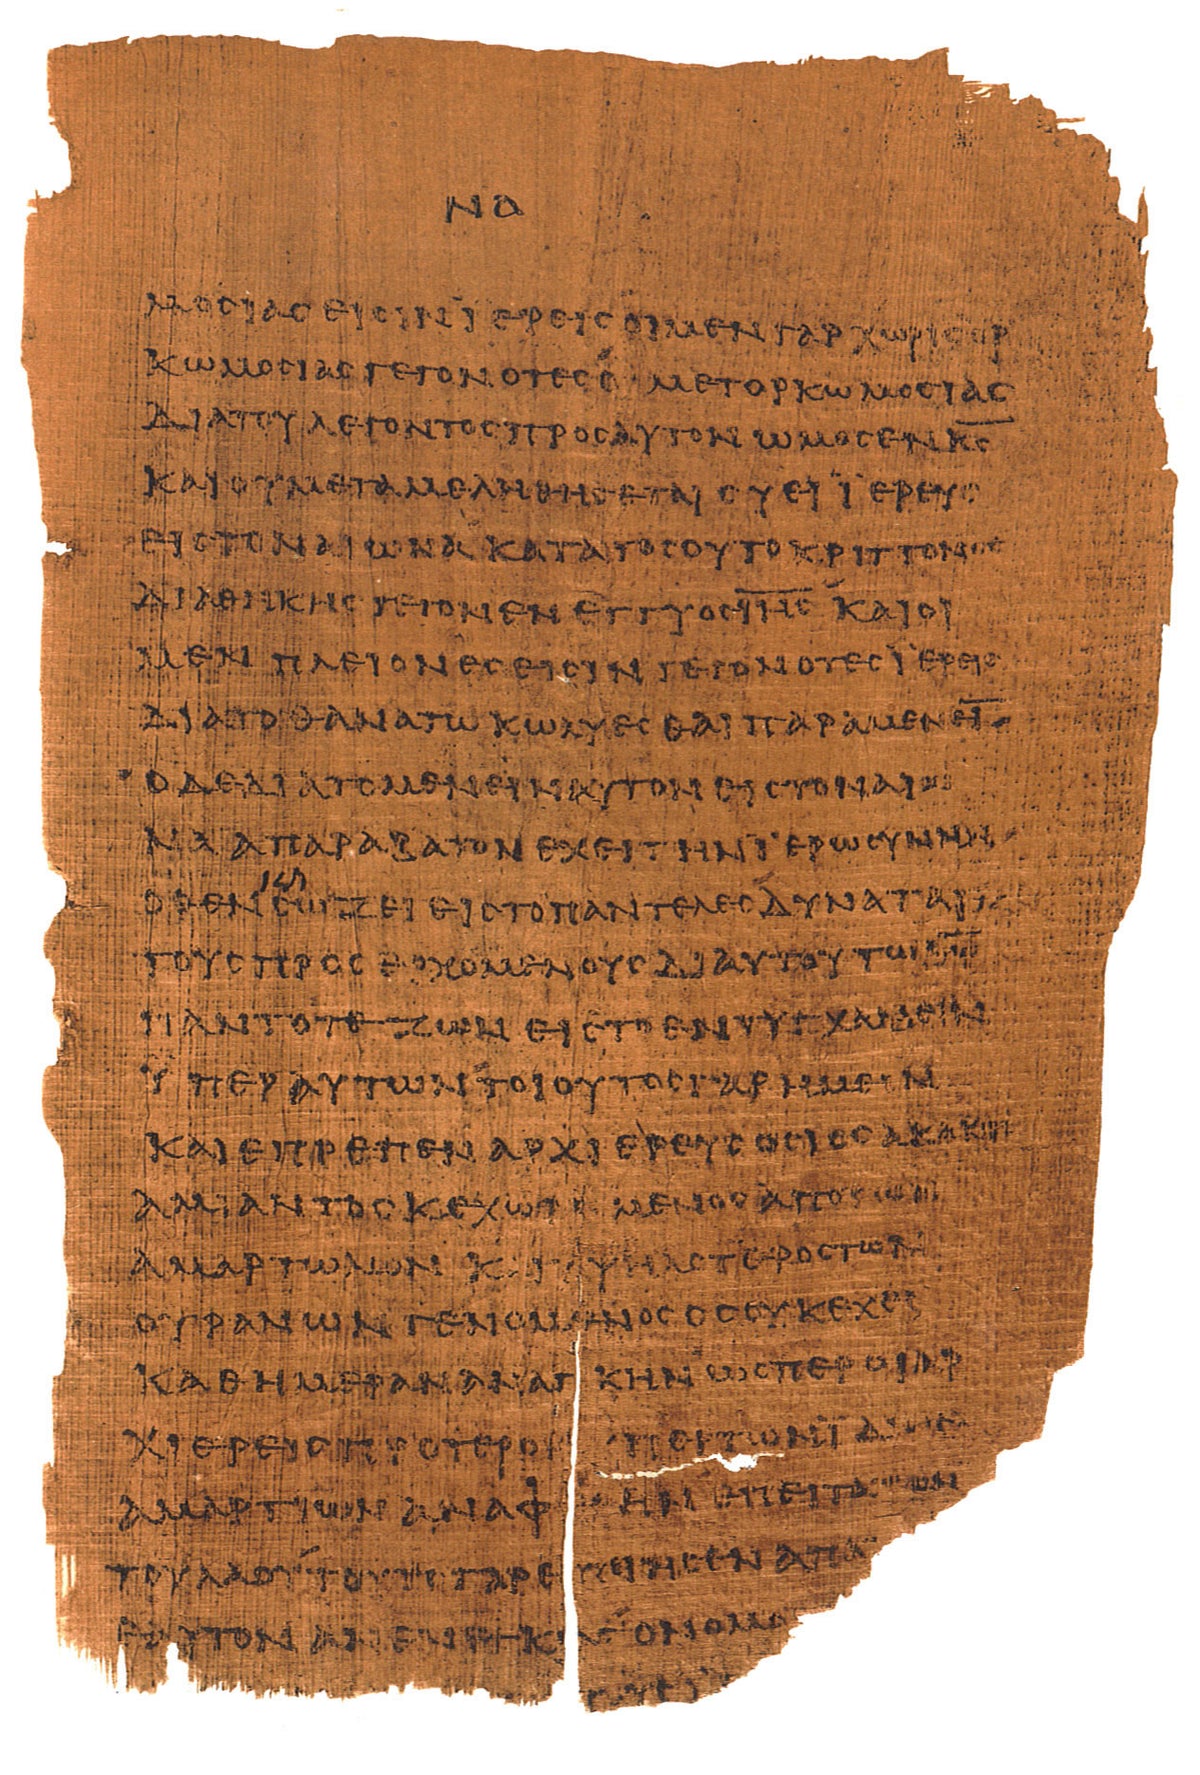 ΝΑ
ΜΟCΙΑC ΕΙCΙΝ ΪΕΡΕΙC ΟΙ ΜΕΝ ΓΑΡ ΧΩΡΙC ΟΡ
ΚΩΜΟCΙΑC ΓΕΓΟΝΟΤΕC Ο ΜΕΤ ΟΡΚΩΜΟCΙΑC
ΔΙΑ ΤΟΥ ΛΕΓΟΝΤΟC ΠΡΟC ΑΥΤΟΝ ΩΜΟCΕΝ Κ̅C̅
ΚΑΙ ΟΥ ΜΕΤΑΜΕΛΗΘΗCΕΤΑΙ CΥ ΕΙ ΪΕΡΕΥC
ΕΙC ΤΟΝ ΑΙΩΝΑ ΚΑΤΑ ΤΟCΟΥΤΟ ΚΡΙΤΤΟΝΟC
ΔΙΑΘΗΚΗC ΓΕΓΟΝΕΝ ΕΓΓΥΟC Ι̅Η̅C̅ ΚΑΙ ΟΙ
ΜΕΝ ΠΛΕΙΟΝΕC ΕΙCΙΝ ΓΕΓΟΝΟΤΕC ΪΕΡΕΙC
ΔΙΑ ΤΟ ΘΑΝΑΤΩ ΚΩΛΥΕCΘΑΙ ΠΑΡΑΜΕΝΕΙ̅
Ο ΔΕ ΔΙΑ ΤΟ ΜΕΝΕΙΝ ΑΥΤΟΝ ΕΙC ΤΟΝ ΑΙΩ
ΝΑ ΑΠΑΡΑΒΑΤΟΝ ΕΧΕΙ ΤΗΝ ΪΕΡΩCΥΝΗΝ
ΟΘΕΝ CΩΖΕΙ ΕΙC ΤΟ ΠΑΝΤΕΛΕC ΔΥΝΑΤΑΙ
ΤΟΥC ΠΡΟCΕΡΧΟΜΕΝΟΥC ΔΙ ΑΥΤΟΥ ΤΩ Θ̅Ω̅
ΠΑΝΤΟΤΕ ΖΩΝ ΕΙC ΤΟ ΕΝΤΥΓΧΑΝΕΙΝ
ΫΠΕΡ ΑΥΤΩΝ ΤΟΙΟΥΤΟC ΓΑΡ ΗΜΕΙΝ
ΚΑΙ ΕΠΡΕΠΕΝ ΑΡΧΙΕΡΕΥC ΟCΙΟC ΑΚΑΚΟC
ΑΜΙΑΝΤΟC ΚΕΧΩΡΙ ΜΕΝΟC ΑΠΟ ΤΩΝ
ΑΜΑΡΤΩΛΩΝ ΚΑΙ ΥΨΗΛΟΤΕΡΟC ΤΩΝ
ΟΥΡΑΝΩΝ ΓΕΝΟΜΕΝΟC ΟC ΟΥΚ ΕΧΕΙ
ΚΑΘ ΗΜΕΡΑΝ ΑΝΑΓΚΗΝ ΩCΠΕΡ ΟΙ ΑΡ
ΧΙΕΡΕΙC ΠΡΟΤΕΡΟΝ ΥΠΕΡ ΤΩΝ ΪΔΙΩΝ
ΑΜΑΡΤΙΩΝ ΑΝΑΦ ΕΠΕΙΤΑ ΤΩΝ
ΤΟΥ ΛΑΟΥ ΤΟΥΤΟ ΓΑΡ ΕΠΟΙΗCΕΝ ΑΠΑ
ΕΑΥΤΟΝ ΑΝΕΝΕΓΚΑC Ο ΝΟΜΟ